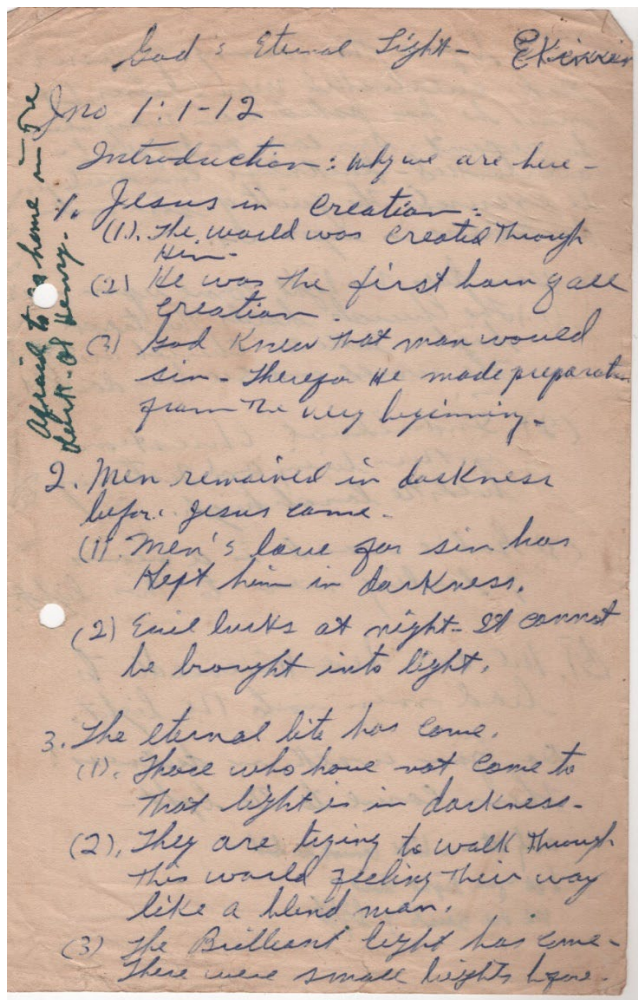 God's Eternal Light -
Jno 1:1-12
Introduction: why we are here -
1. Jesus in Creation:
(1). The world was created Through
Him -
(2) He was The first born of all
Creation.
(3) God Knew That man would
sin - Therefor He made preparat
from The very beginning.
2. Men remained in darkness
before Jesus came -
(1). Men's love for sin has
Kept him in darkness.
(2) Evil lurks at night - It cannot
be brought into light.
3. The eternal lite has come.
(1). Those who have not come to
That light is in darkness -
(2). They are trying to walk Through
this world feeling Their way
like a blind man.
(3) The Brilliant light has come -
There were small lights before.
Afraid to go home in The
dark - Of Henry.